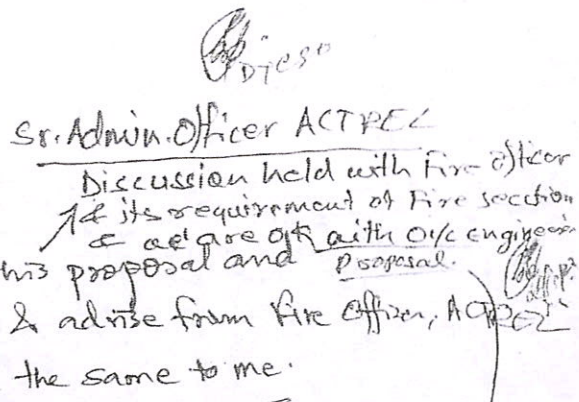 Sr. Admin. Officer ACTREC
Discussion held with Fire officer
& its requirement of Fire section
& are ok with O/c engineering
proposal.
his proposal and
& advise from Fire Officer, ACTREC
the same to me.